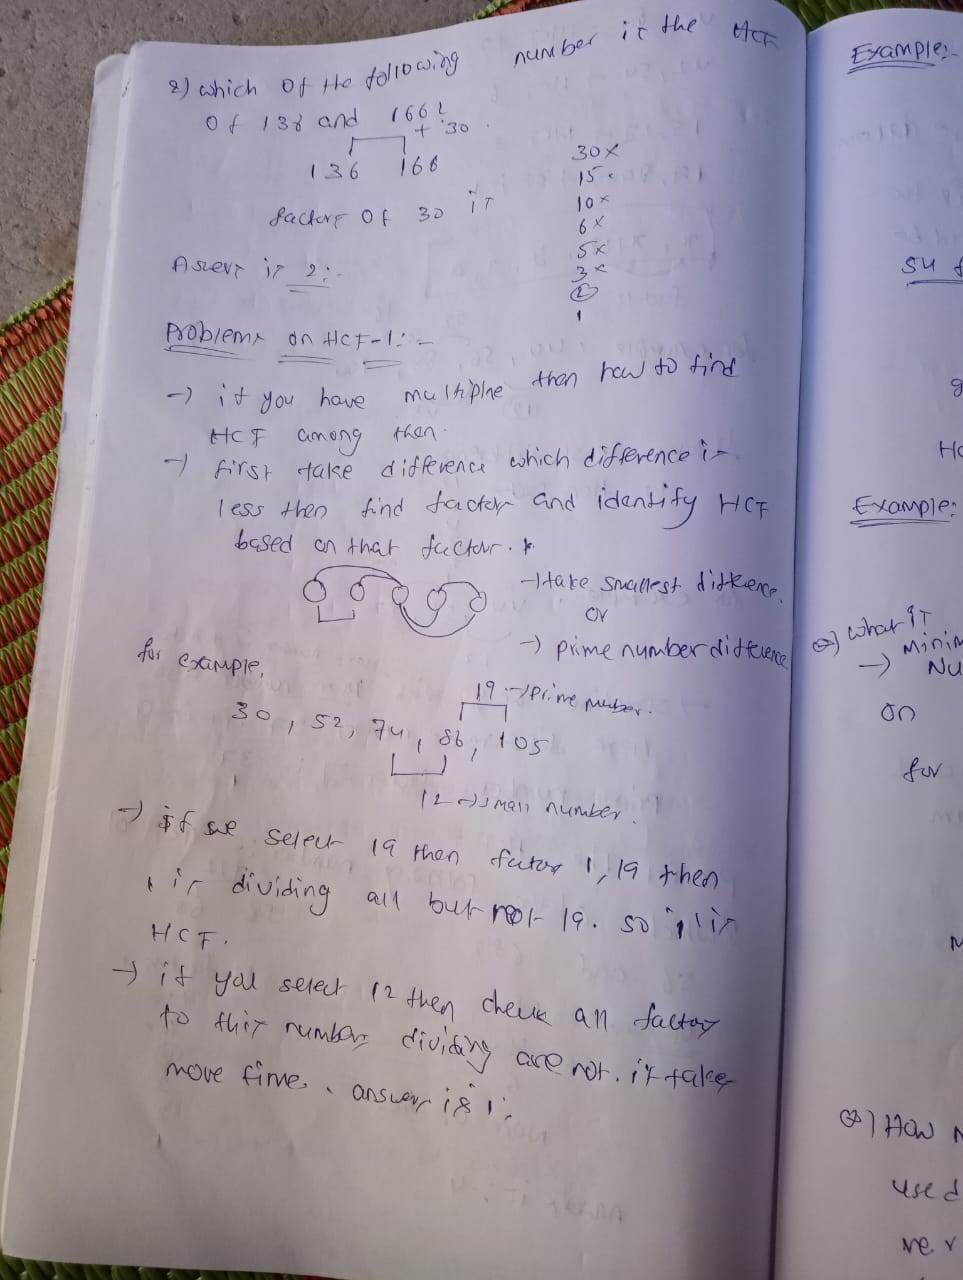 2) which of the following number is the HCF
of 136 and 166?
+ 30
136 166
30 x
15 .
10 x
6 x
5 x
3 x
2
1
factors of 30 is
Aswer is 2:-
Problems on HCF-1:-
→ if you have multiplne then how to find
HCF among then.
→ first take difference which difference is
less then find factor and identify HCF
based on that factor.
→ take smallest difference.
or
→ prime number difference
for example,
19 → prime number.
30, 52, 74, 86, 105
12 → small number.
→ if we select 19 then factor 1, 19 then
1 is dividing all but not 19. so 1 is
HCF.
→ if you select 12 then check all factors
to this numbers dividing are not. it takes
more time. answer is 1.
Example:-
Example:
what is
Minim
→ Nu
on
for
Q) How
used